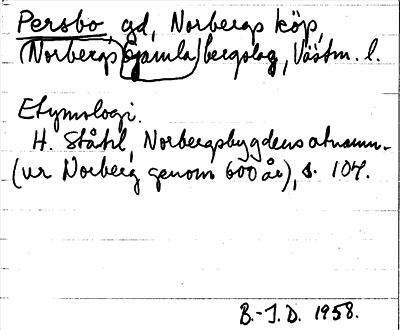 Persbo, gd, Norbergs köp,
(Norbergs gamla) bergslag, Västm. l.
Etymologi.
H. Ståhl, Norbergsbygdens ortnamn.
(ur Norberg genom 600 år), s. 107.
B.-I.D. 1958.